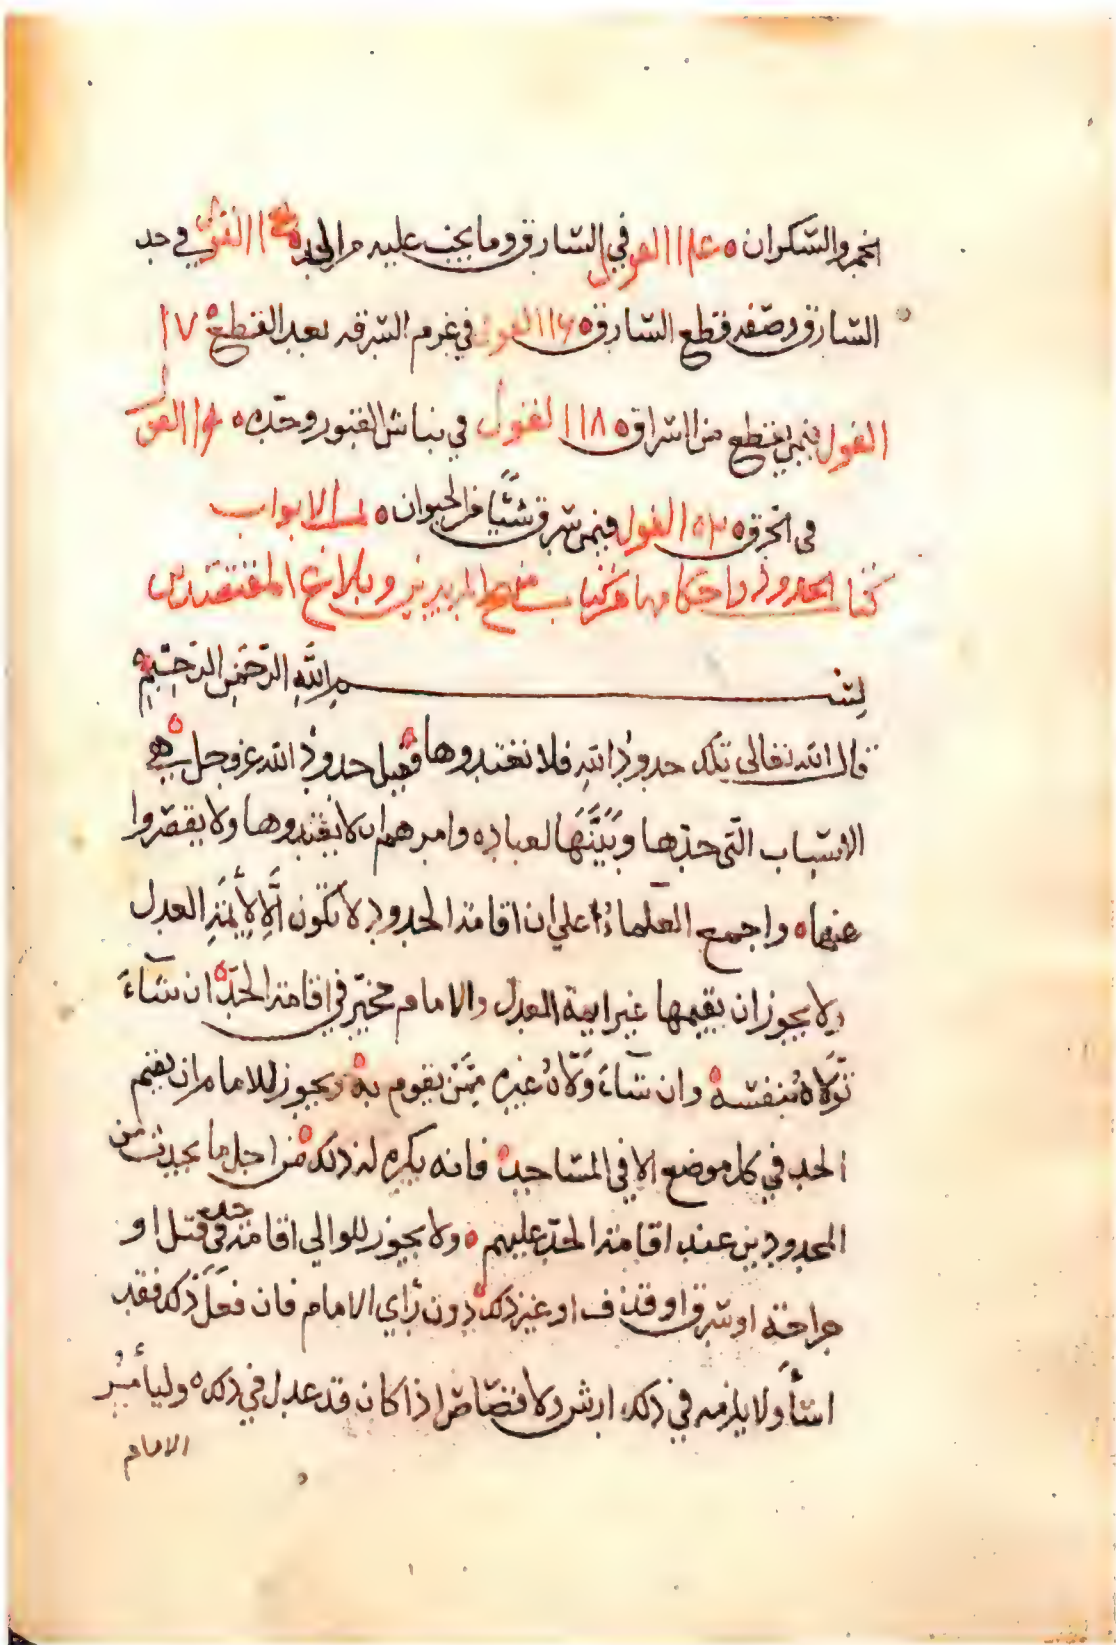 الخمر والسكران ه ١١٤ القول في السارق وما يجب عليه من الحد ه ١١٥ القول في حد
السارق وصفه قطع السارق ه ١١٦ القول في غرم السرقه بعد القطع ه ١١٧
القول فيمن يقطع من السراق ه ١١٨ القول في نباش القبور وحده ه ١١٩ القول
في الحرق ه ١٢٠ القول فيمن سرق شيئا من الحيوان ه تمت الابواب
كتاب الحدود واحكامها من كتاب منهج المريدين وبلاغ المقتصدين
بسم الله الرحمن الرحيم ه
قال الله تعالى تلك حدود الله فلا تعتدوها ه فقيل حدود الله عز وجل هي
الاسباب التي حدها وبَيَّنَهَا لعباده وامرهم ان لا يعتدوها ولا يقصروا
عنها ه واجمع العلماء على ان اقامة الحدود لا تكون إلّا لِأَيمَّةِ العدل
ولا يجوز ان يقيمها غير ايمة العدل والامام مخيّر في اقامة الحدّ ه ان شآءَ
تَوَلّاهُ بنفسه ه وان شآءَ وَلَّاهُ غيره مِمَّن يقوم به ه ويجوز للامام ان يقيم
الحد في كل موضع الا في المساجد ه فانه يكره له ذلك ه من اجل ما يحدث من
المحدودين عند اقامة الحدّ عليهم ه ولا يجوز للوالي اقامة حد في قتل او
جراحة او سرق او قذف او غير ذلك ه دون رأي الامام فان فعَلَ ذلك فقد
اسَأَ ولا يلزمه في ذلك ارش ولا قصاص اذا كان قد عدل في ذلك ه وليأمُر
الامام